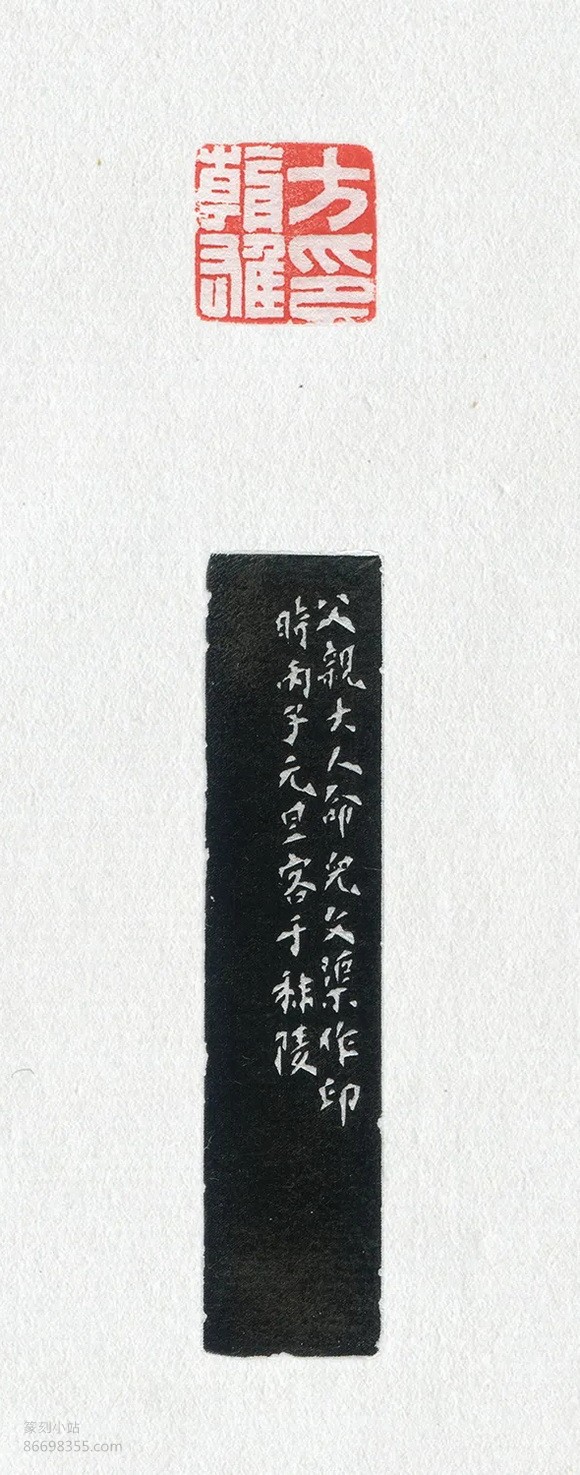 方印
雄
父親大人命兒文渠作印
時丙子元旦客于秣陵
篆刻小站
86698355.com